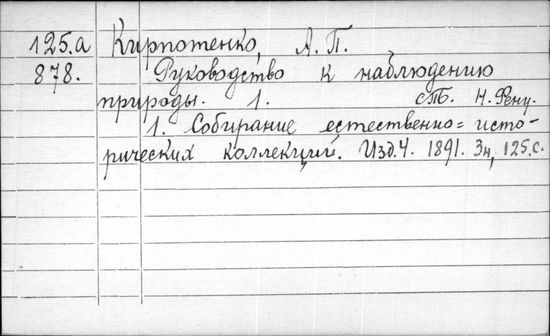 125.а Кирпотенко, А. П.
878. Руководство к наблюдению
природы. 1. сТб. Н. Фену.
1. Собирание естественно=исто-
рических коллекций. Изд. 4. 1891. 3н, 125.с.